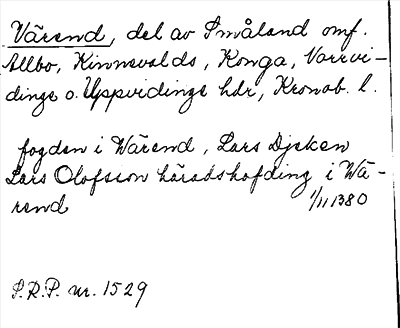 Värend, del av Småland omf.
Allbo, Kinnevalds, Konga, Norrvi-
dinge o. Uppvidinge hdr, Kronob. l.
fogden i Wärend, Lars Djeken
Lars Olofsson häradshöfding i Wä-
rend 1/11 1380
S.R.P. nr. 1529